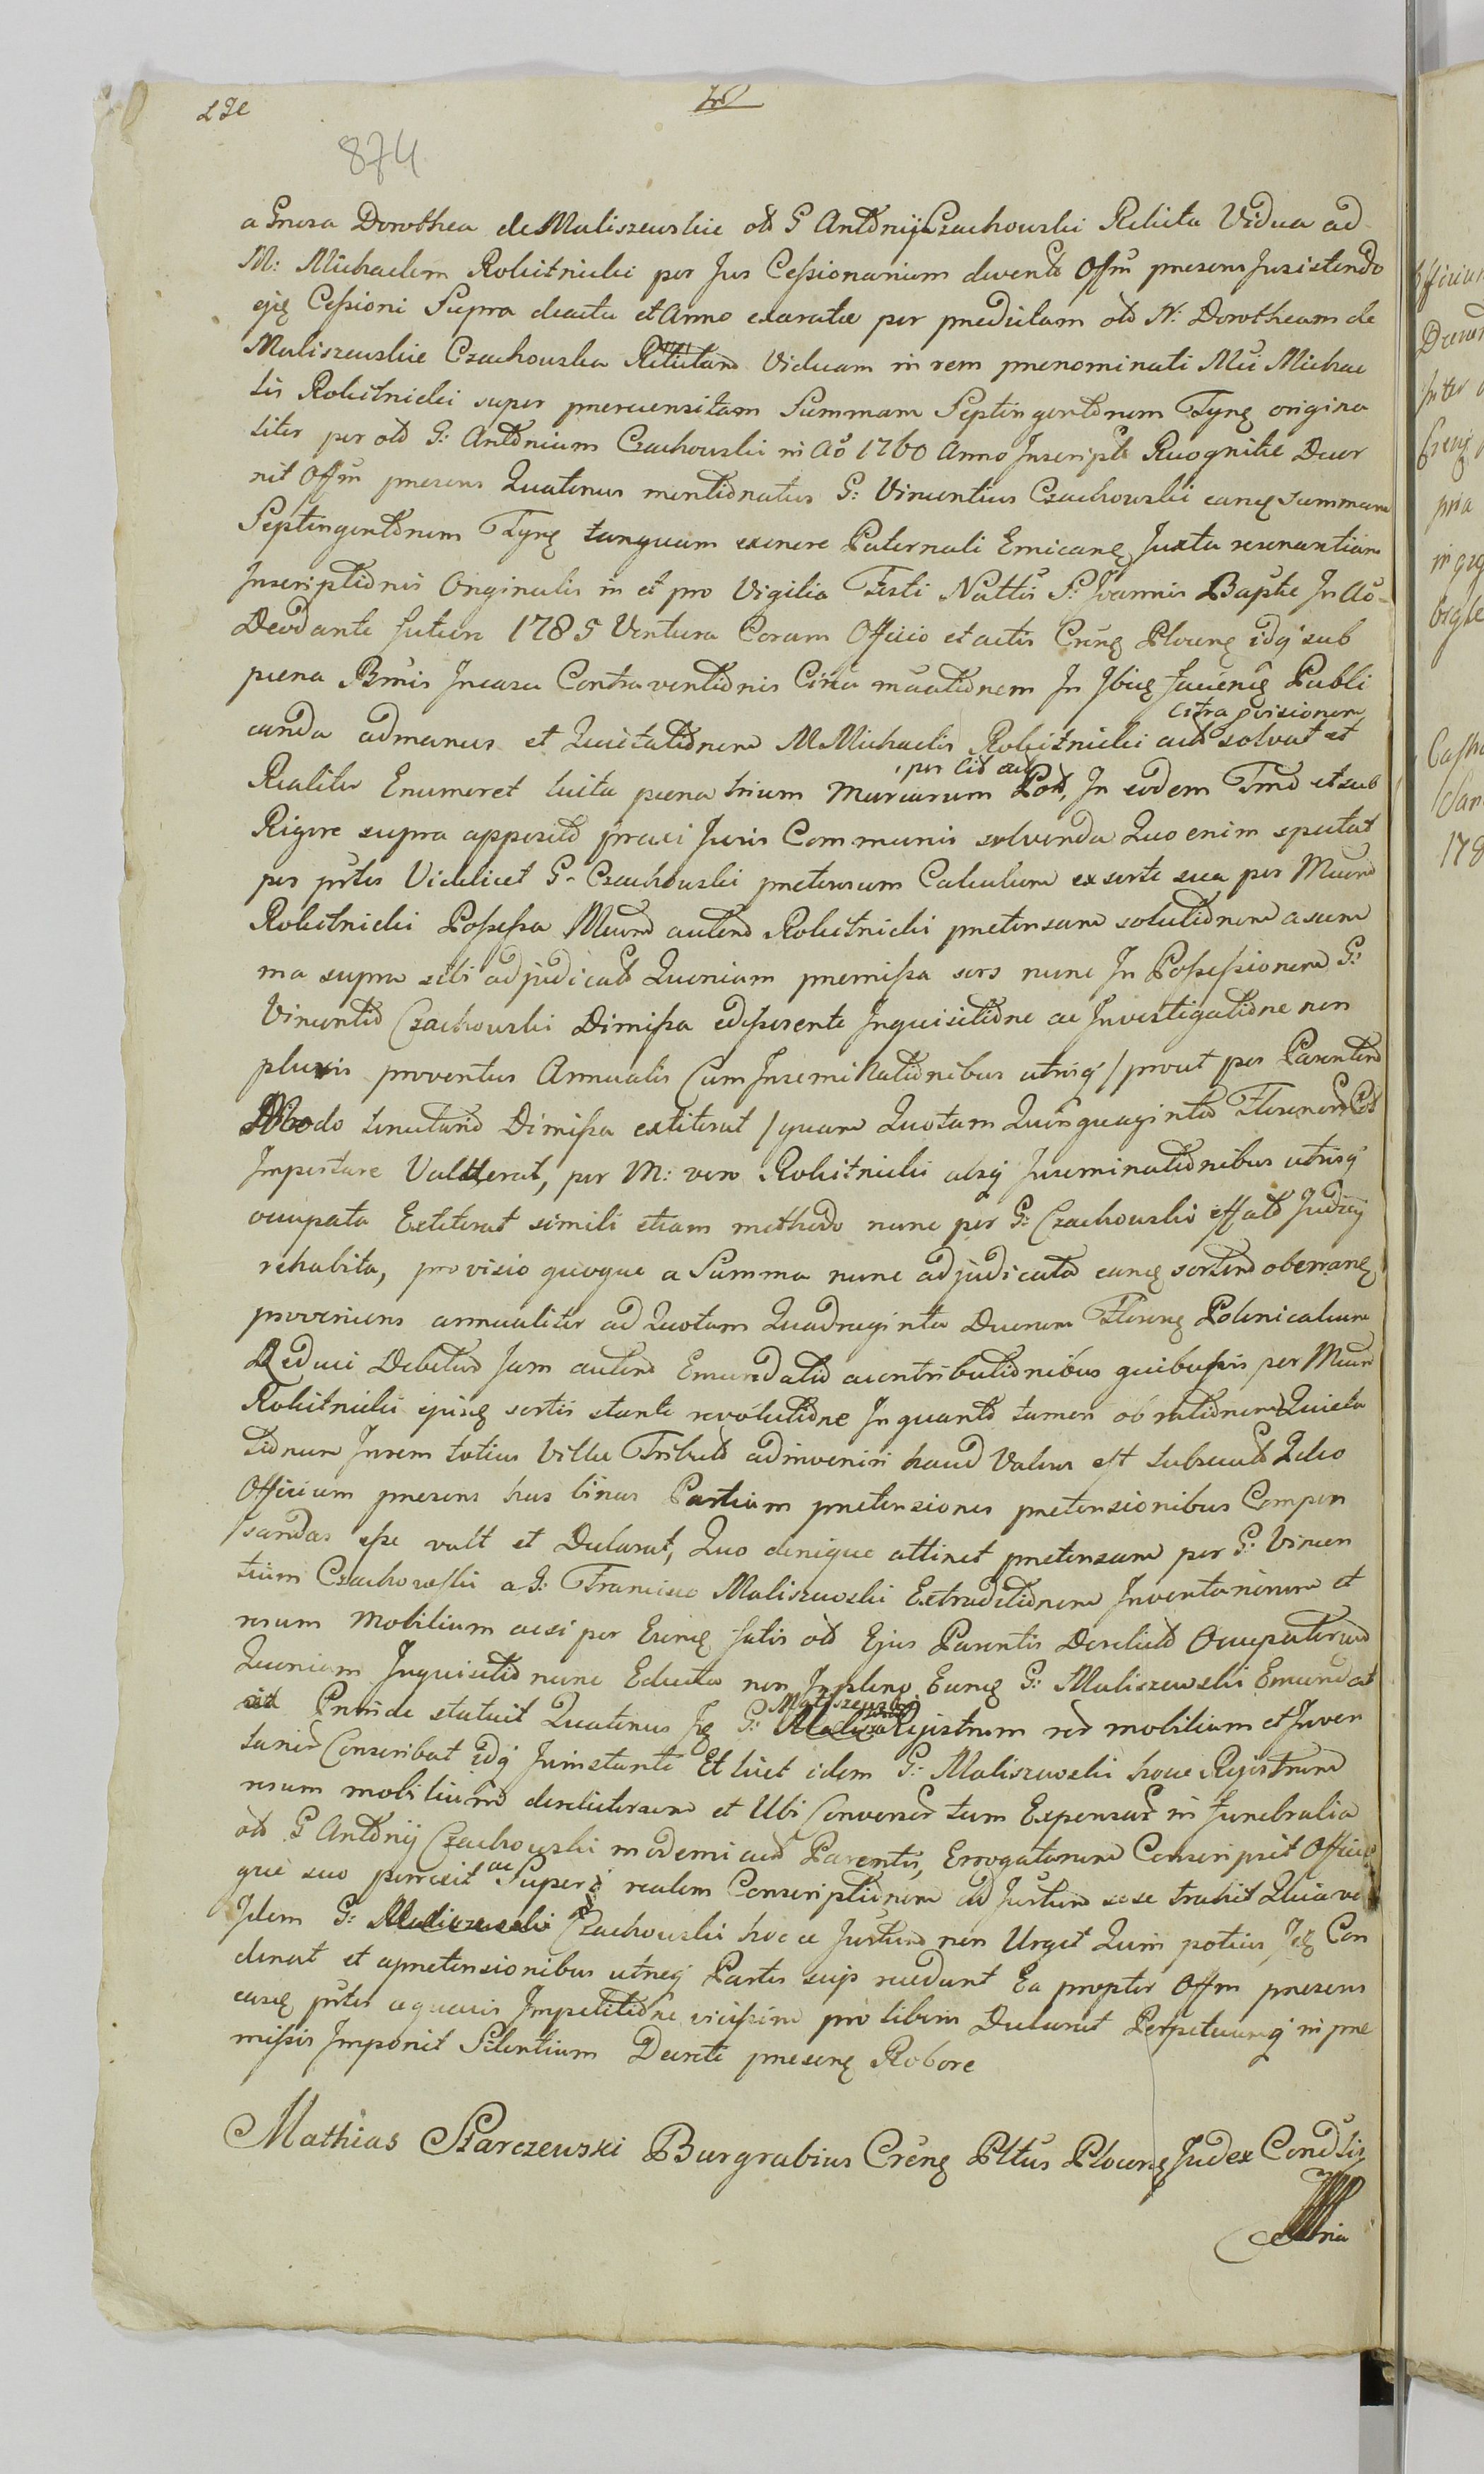 874
a Gnrosa Dorothea de Maliszewskie olt G Antonij Czachowski Relicta Vidua ad
M: Michaelem Rokitnicki per Jus Cessionarium devente Offm presens Jnsistendo
ejq Cessioni Supra de actu et Anno exaratæ per predictam olt N: Dorotheam de
Maliszewskie Czachowska Relictam Viduam in rem prenominati Mci Michae
lis Rokitnicki super prerecensitam Summam Septingentorum Fynq origina
liter per olt G: Antonium Czachowski in Ao 1760 Anno Jnscripte Recognitæ Decer
nit Offm presens Quatenus mentionatus G: Vincentius Czachowski eanq summam
Septingentorum Fynq tanquam exonere Paternali Emicanq Juxta resonantiam
Jnscriptionis Originalis in et pro Vigilia Festi Nattis S: Joannis Baptæ Jn Ao
Deo dante futuro 1785 Ventura Coram Officio et actis Crenq Plocenq idq sub
pæna Bnnis Jncasu Contraventionis Circa
canda admanus et Quietationem M Michaelis Rokitnicki act solvat et
citra provisionem
Realiter Enumeret luita pæna trium Marcarum Pol, Jn eodem Tmo et sub
per
Rigore supra apposito praxi Juris Communis solvenda Quo enim spectat
per prtes Videlicet G. Czachowski pretensum Calculum ex sorte sua per Mcum
Rokitnicki Possessa Mcum autem Rokitnicki pretensam solutionem a sum
ma supra sibi adjudicata Quoniam premissa sors nunc Jn Possessionem G:
Vincentio Czachowski Dimissa edisserente Jnquisitione ac Jnvestigatione non
pluris proventus Annualis Cum Jnseminationibus utrisq / prout per Parentem
Modo tenutario Dimissa extiterat / quam Quotam Quinquaginta Florenorum Pol
Jmportare Valuerat, per M: vero Rokitnicki absq Jnseminationibus utrisq
occupata Extiterat simili etiam methodo nunc per G: Czachowski effato Judicij
rehabita, provisio quoque a Summa nunc adjudicata eanq sortem oberranq
proveniens annualiter ad Quotam Quadraginta Duorum Florenq Polonicalium
Reduci Debetur Jam autem Emundatio a contributionibus quibusvis per Mcum
Rokitnicki ejusq sortis stante revolutione Jn quanto tamen ob rationem Quieta
tionum Jnrem totius Villæ Tributo adinveniri haud Valens est subsecuta Jdeo
Officium presens has binas Partium pretensiones pretensionibus Compen
sandas esse vult et Declarat, Quo denique attinet pretensam per G: Vincen
tium Czachowski a G: Francisco Maliszewski Extraditionem Jnventariorum et
rerum Mobilium acsi per Eunq fatis olt Ejus Parentis Derelicto Occupatorum
Quoniam Jnquisitio nunc Educta non Jnpleno Eunq G: Maliszewski Emundat
Proinde statuit Quatenus Jq G: Registrum rerum mobilium et Jnven
Maliszewski
tariorum Conscribat idq Jurnstante Et licet idem G: Maliszewski hocce Registrum
rerum mobilium derelictarum et Ubi Conversarum tum Expensarum in funebralia
olt G Antonij Czachowski moderni act Parentis, Errogatarum Conscripsit Officio
que suo porrexit ac Super realem Conscriptionem ad Jurtum sese trahit Quia vero
Jdem G: Czachowski hocce Jurtum non Urget Quin potius Jdq Con
donat et a pretensionibus utræq Partes suis recedunt Ea propter Offm presens
easq prtes a quavis Jmpetitione vicissim pro liberis Declarat Perpetuumq in pre
missis Jmponit Silentium Decreti presenq Robore
Mathias Starczewski Burgrabius Crenq Pltus Plocenq Judex Condlis